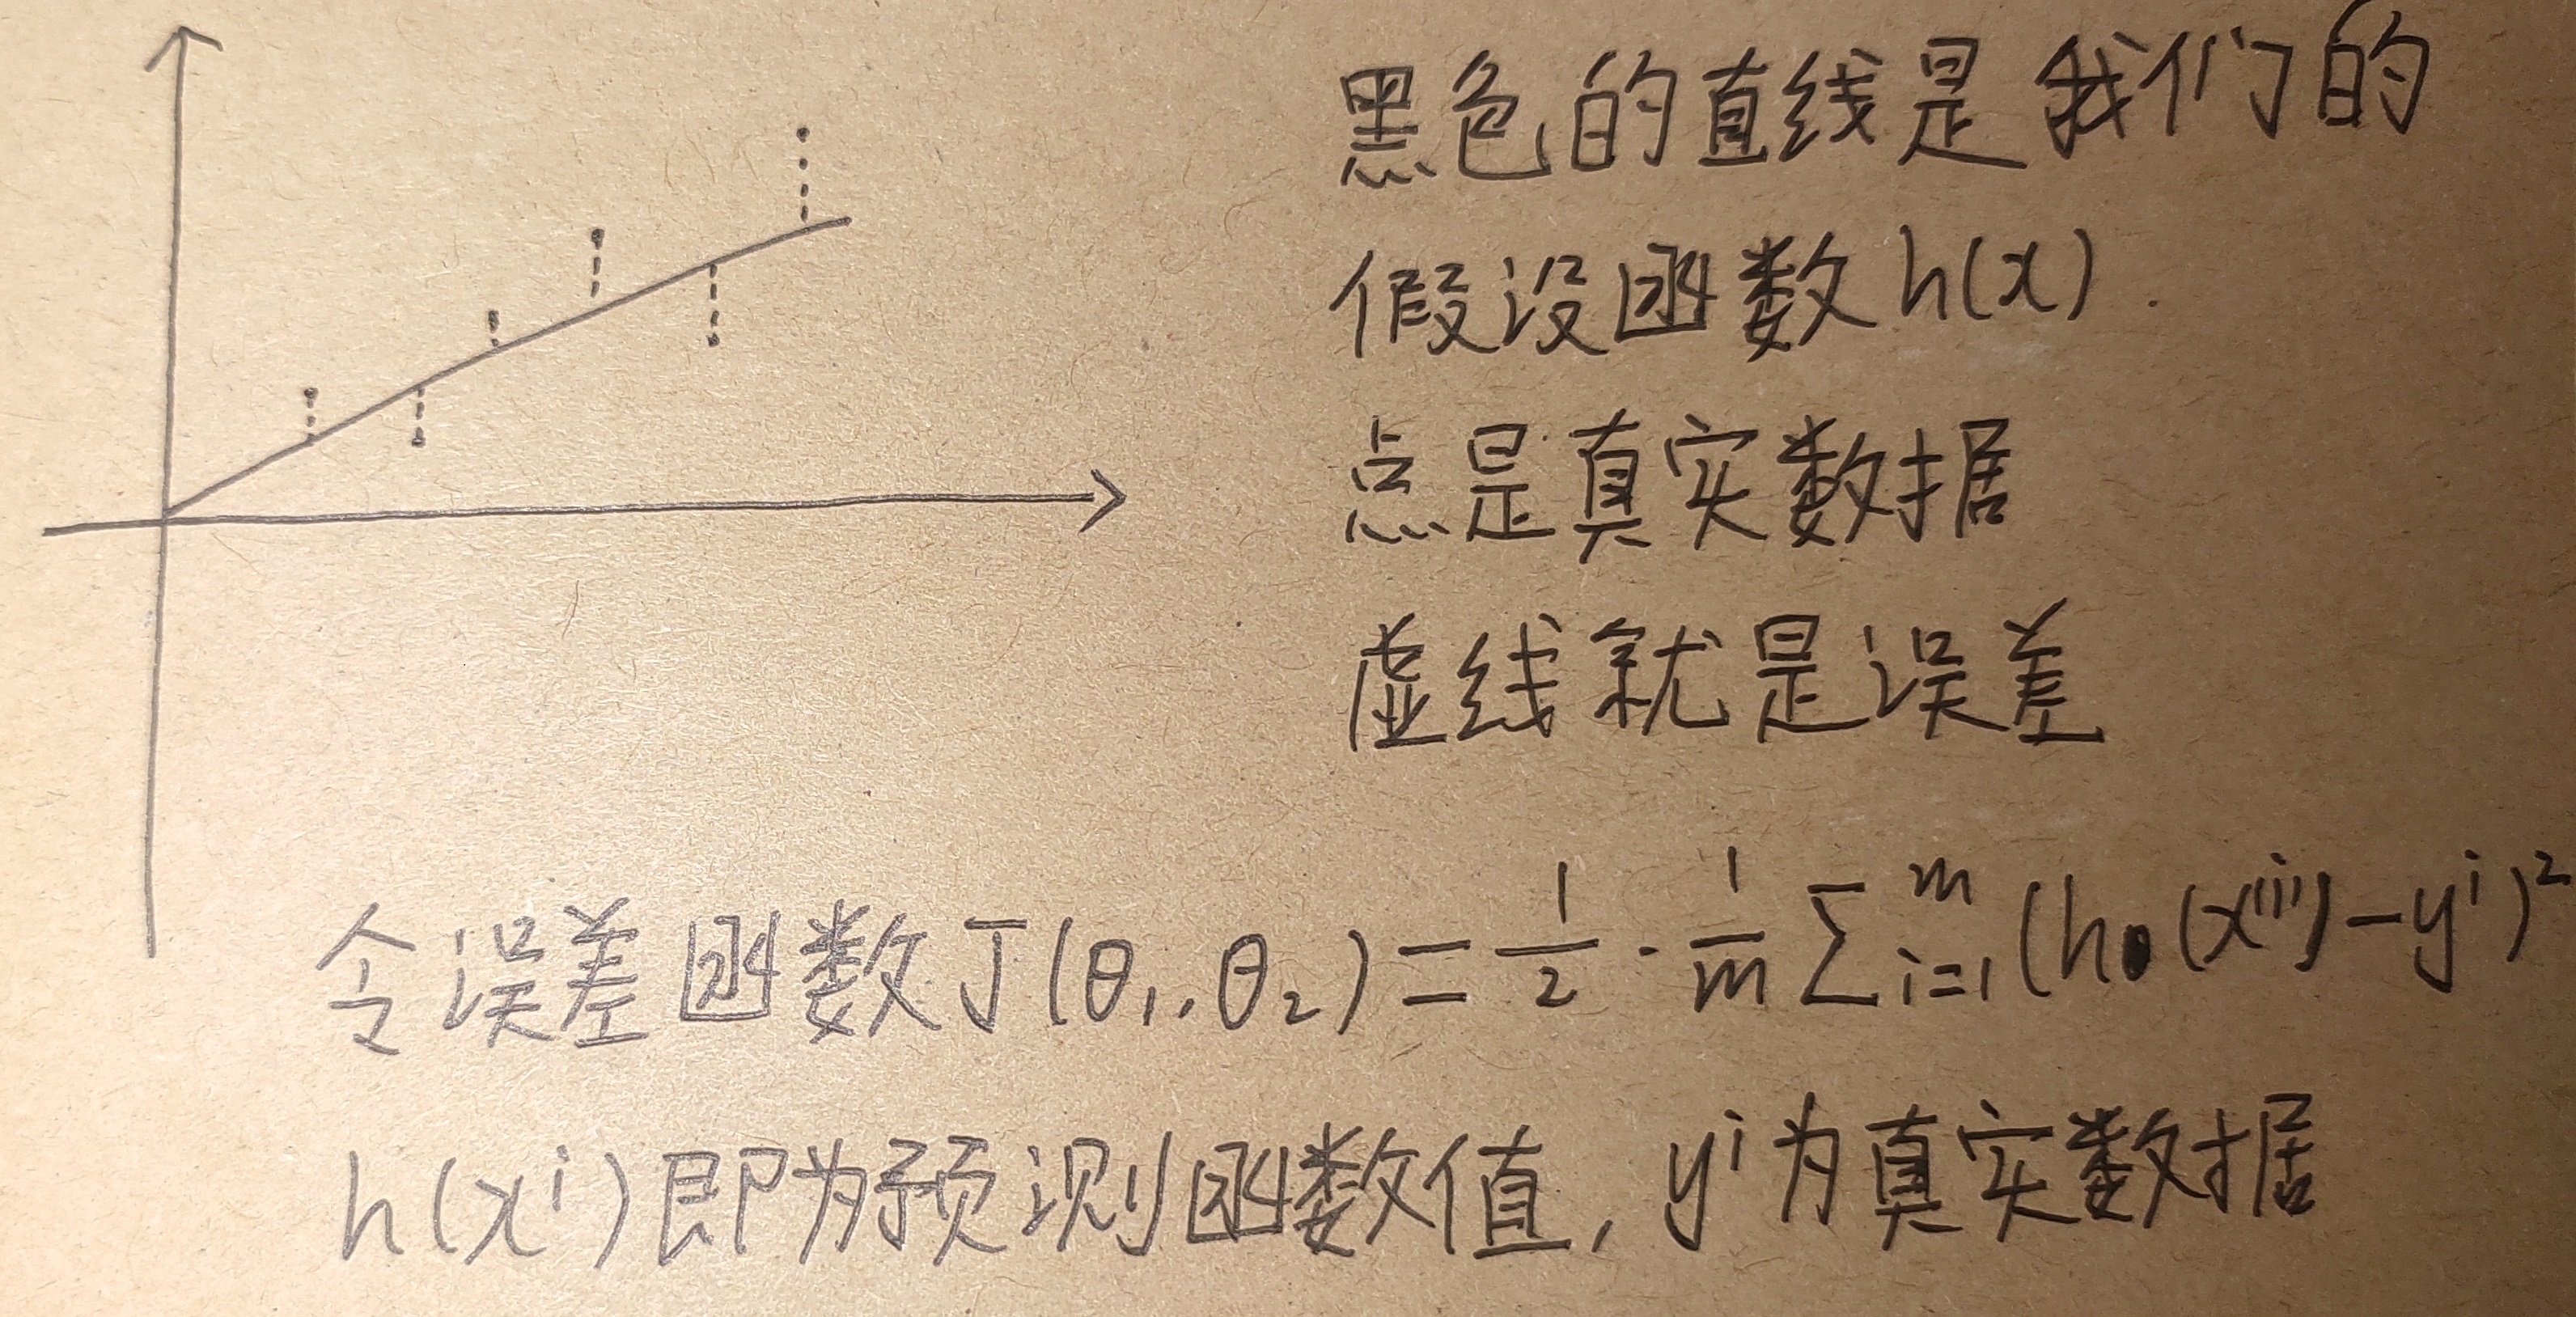 黑色的直线是我们的
假设函数h(x).
点是真实数据
虚线就是误差
令误差函数J(θ₁,θ₂)=1/2·1/m∑ᵢ₌₁ᵐ(h(x⁽ⁱ⁾)-yⁱ)²
h(xⁱ)即为预测函数值,yⁱ为真实数据